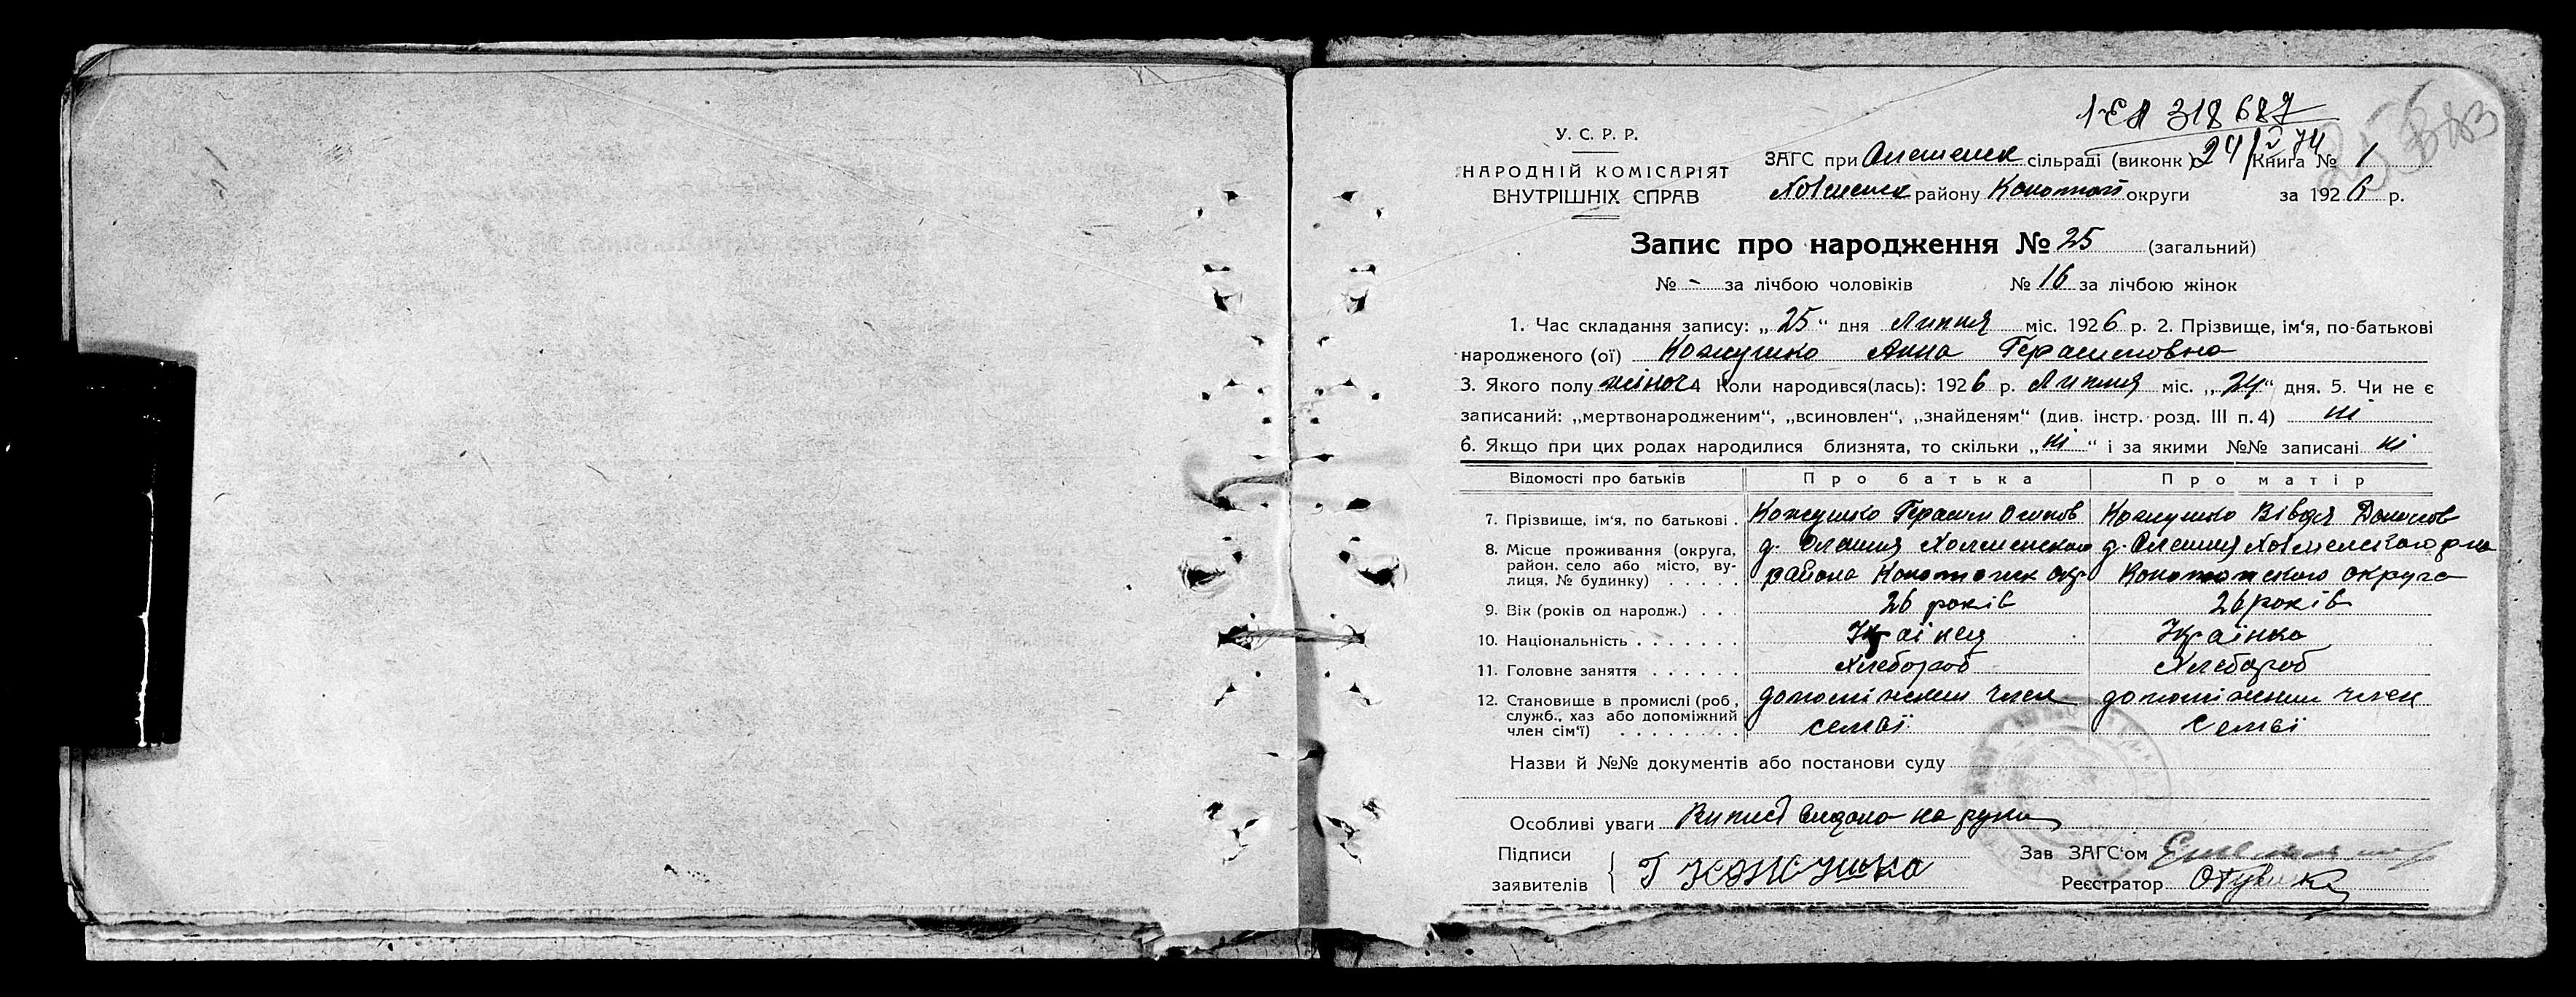 1-ЄЛ 318687
24/V 74
У. С. Р. Р.
НАРОДНІЙ КОМІСАРІЯТ
ВНУТРІШНІХ СПРАВ
ЗАГС при Олешенск сільраді (виконк ) Книга № 1
Холменск району Конотоп округи за 1926 р.
Запис про народження № 25 (загальний)
№ - за лічбою чоловіків № 16 за лічбою жінок
1. Час складання запису: „25“ дня Липня міс. 1926 р. 2. Прізвище, ім‘я, по-батькові
народженого (ої) Кожушко Анна Герасимовна
3. Якого полу жіноч 4 Коли народився(лась): 1926 р. Липня міс. „24“ дня. 5. Чи не є
записаний: „мертвонародженим“, „всиновлен“, „знайденям“ (див. інстр. розд. III п. 4) ні
6. Якщо при цих родах народилися близнята, то скільки „ні“ і за якими №№ записані ні
Відомості про батьків Про батька Про матір
7. Прізвище, ім‘я, по батькові . Кожушко Герасим Осипов Кожушко Вівдя
8. Місце проживання (округа, район, село або місто, вулиця, № будинку) . . . . . д. Олешня Холменского д. Олешня Холменского р-на
района Конотопск окр Конотопского округа
9. Вік (років од народж.) . . . 26 років 26 років
10. Національність . . . . . . . Україец Українка
11. Головне заняття . . . . . . Хлебороб Хлебороб
12. Становище в промислі (роб., служб., хаз або допоміжний член сім‘ї) . . . . . . . . допоміжний член допоміжний член
семьї семьї
Назви й №№ документів або постанови суду
Особливі уваги Випись видана на руки
Підписи
заявителів Г Кожушко
Зав ЗАГС‘ом
Реєстратор